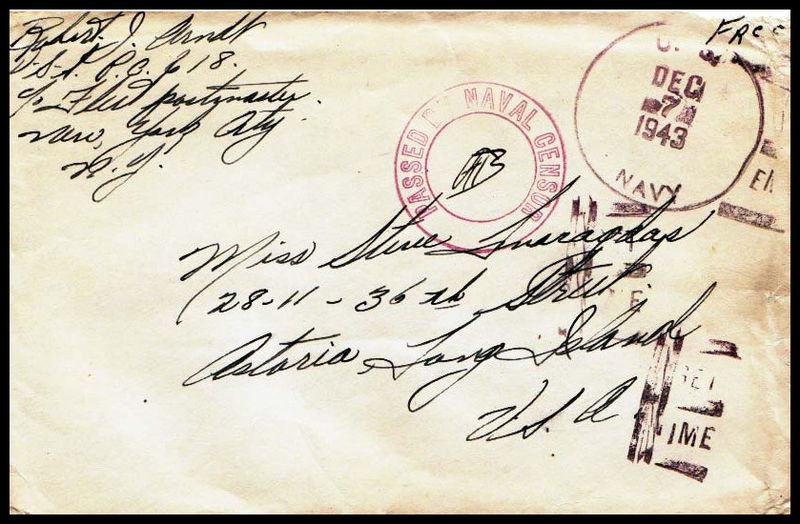 Robert J. Arndt
U.S.S. P.C. 618.
c/o Fleet Postmaster.
New, York City
N.Y.
FREE
U. S.
DEC
7
1943
NAVY
PASSED BY NAVAL CENSOR
Miss
28-11 - 36th Street.
Astoria, Long Island
U.S. A
IME